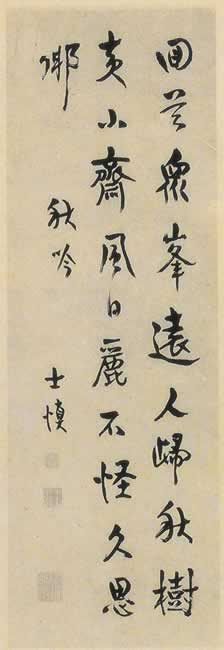 回首衆峯遠人歸秋樹
黄小齋風日麗不怪久思
鄉 秋吟 士慎